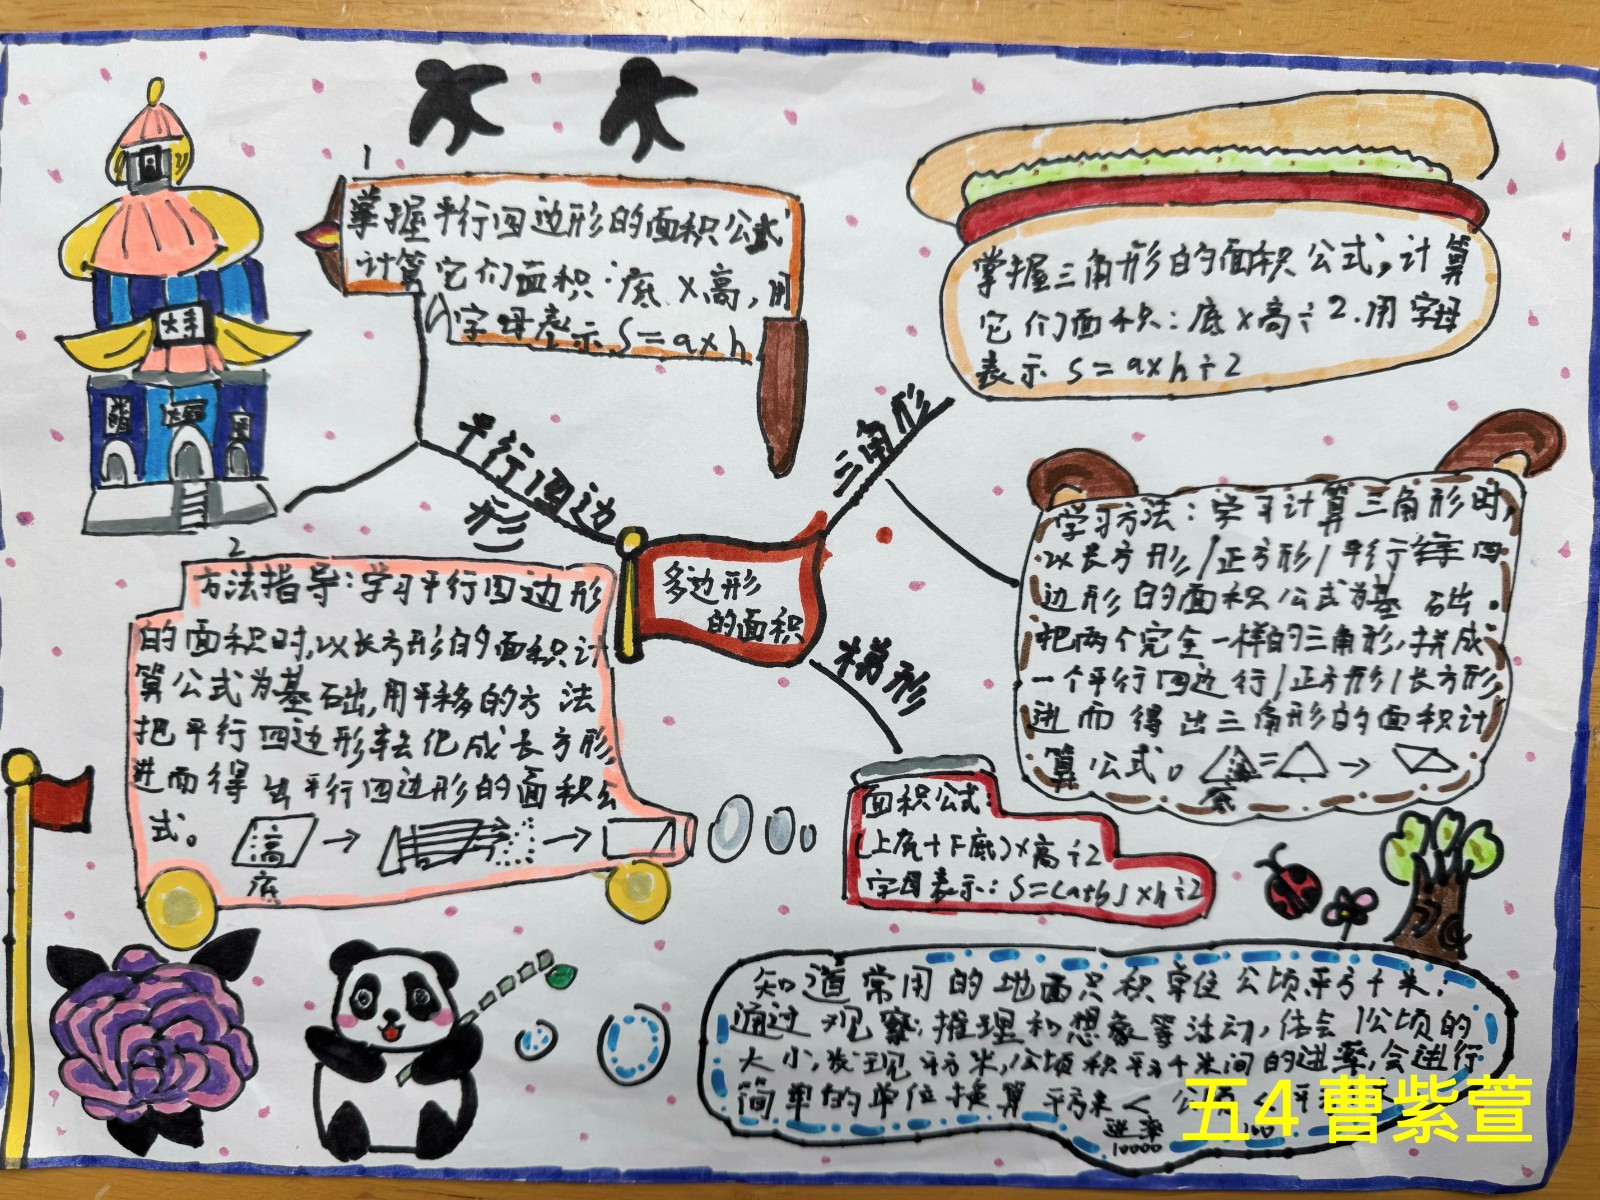 1
掌握平行四边形的面积公式
计算它们面积:底×高,用
字母表示 S=a×h
掌握三角形的面积公式,计算
它们面积:底×高÷2.用字母
表示 S=a×h÷2
大手
平行四边
形
三角形
多边形
的面积
梯形
2
方法指导:学习平行四边形
的面积时,以长方形的面积计
算公式为基础,用平移的方法
把平行四边形转化成长方形,
进而得出平行四边形的面积公
式。
高
底
学习方法:学习计算三角形时,
以长方形/正方形/平行四
边形的面积公式为基础.
把两个完全一样的三角形,拼成
一个平行四边行/正方形/长方形,
进而得出三角形的面积计
算公式。
底
面积公式:
(上底+下底)×高÷2
字母表示:S=(a+b)×h÷2
知道常用的地面积单位公顷平方千米,
通过观察,推理和想象等活动,体会1公顷的
大小,发现平方米,公顷积平方千米间的进率,会进行
简单的单位换算 平方米< 公顷<平
进率 100
10000
五4 曹紫萱